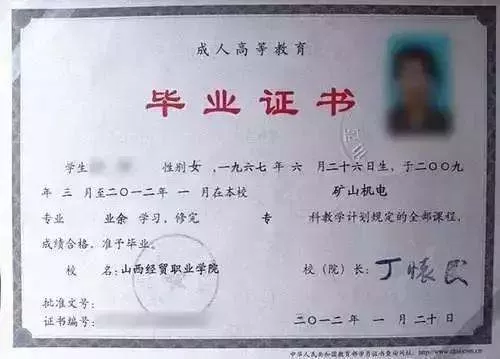 成人高等教育
毕业证书
学生 性别女,一九六七年六月二十六日生,于二〇〇九
年三月至二〇一二年一月在本校 矿山机电
专业 业余学习,修完 专 科教学计划规定的全部课程,
成绩合格,准予毕业。
校 名:山西经贸职业学院 校(院)长:
批准文号:
证书编号: 二〇一二年一月二十日
中华人民共和国教育部学历证书查询网址: